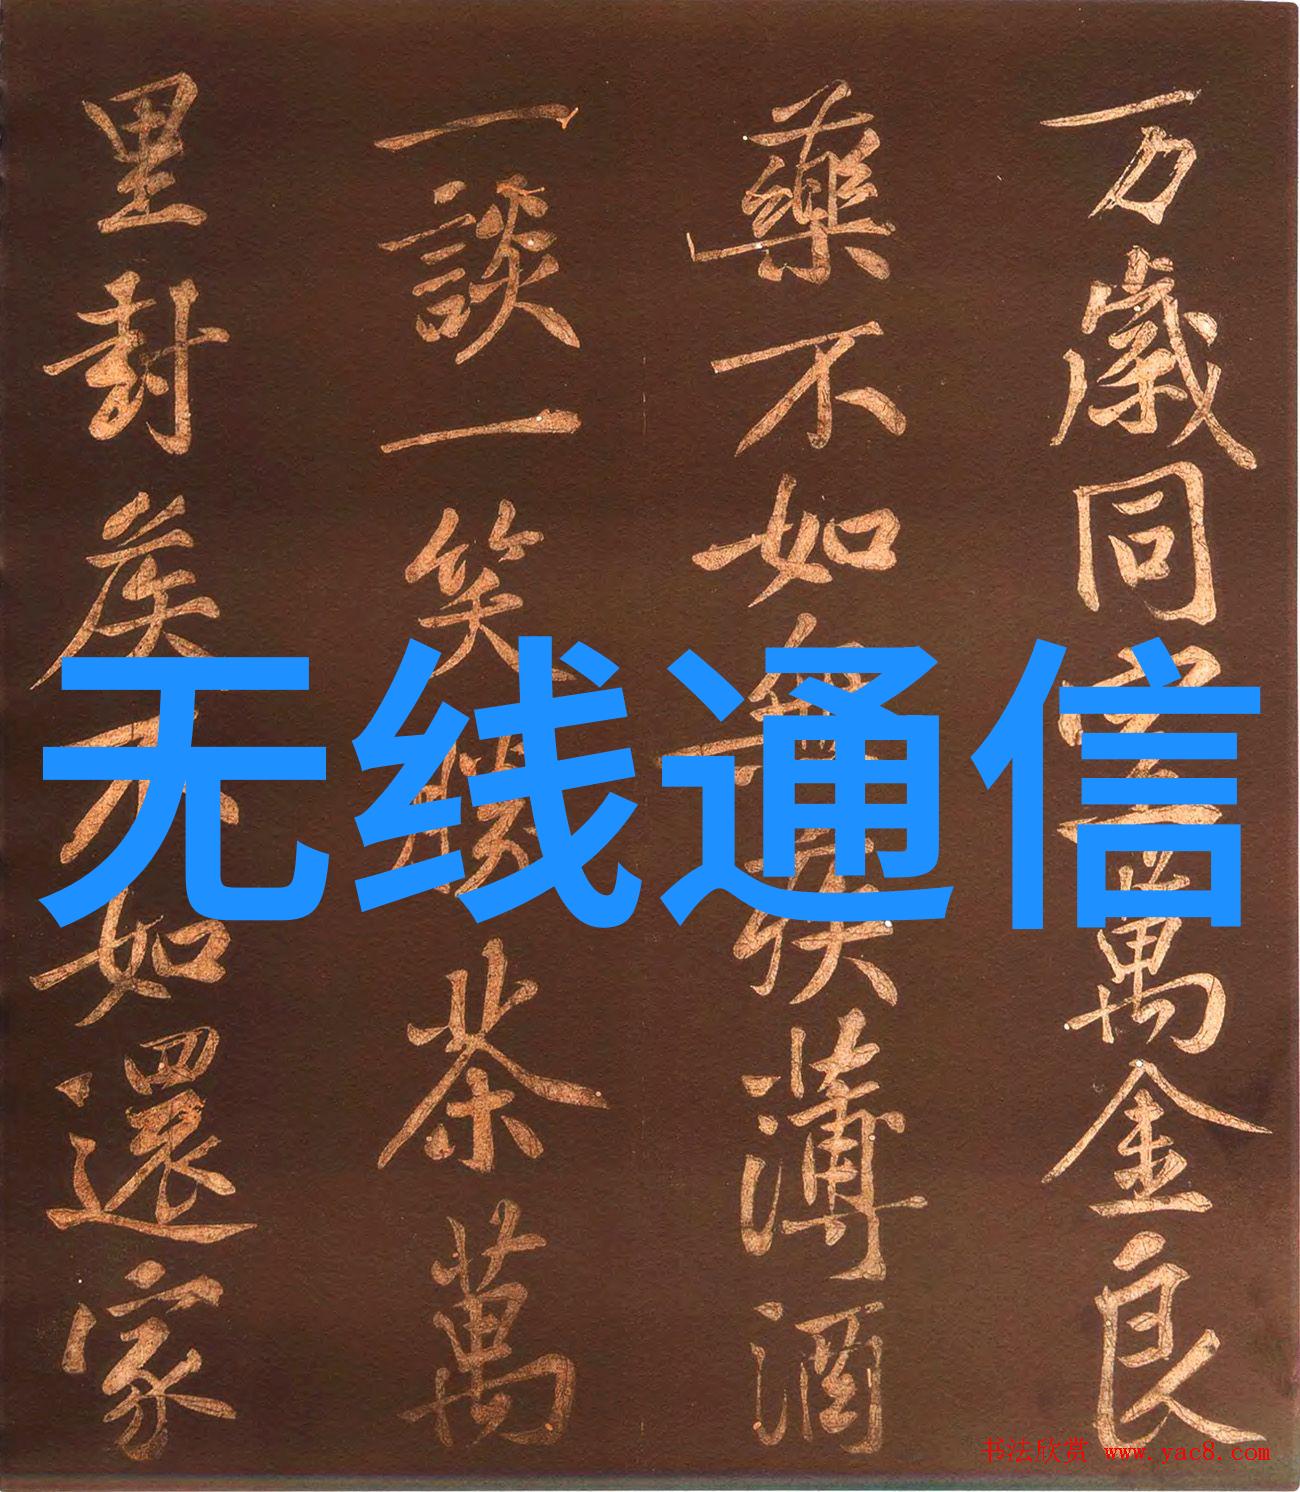 万歲同室萬金良
藥不如無疾薄酒
一談一笑勝茶萬
里封侯不如還家
无线通信
书法欣赏 www.yac8.com